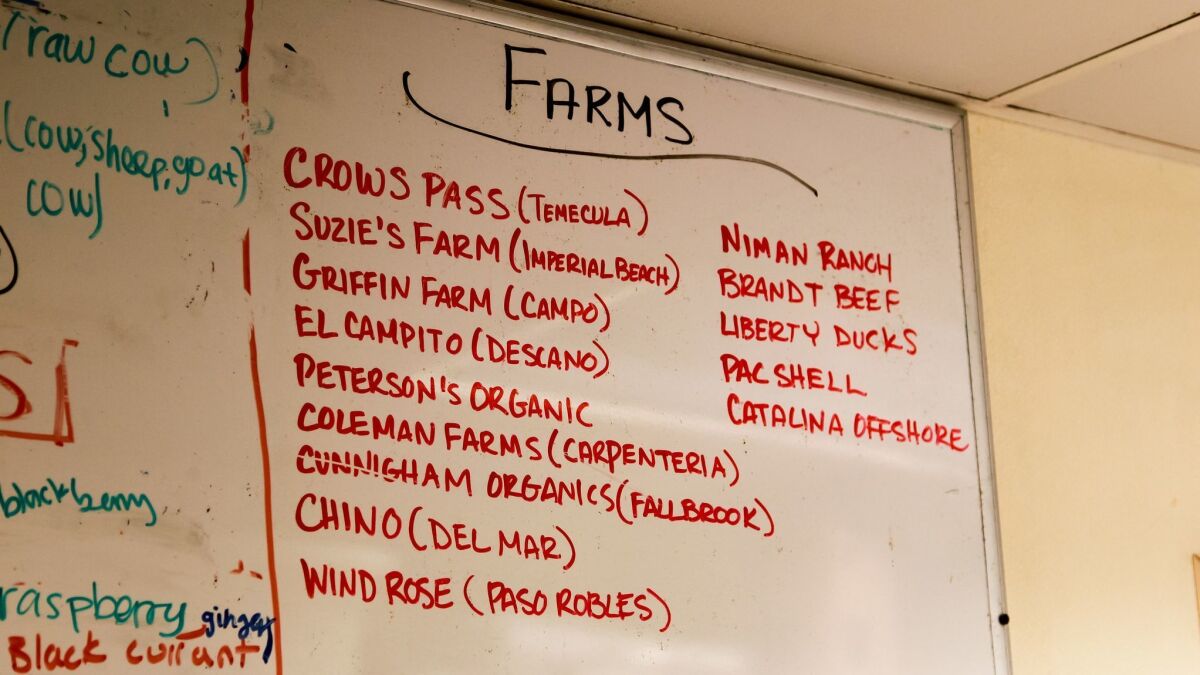 (raw cow)
(cow, sheep, goat)
cow)
blackberry
raspberry ginger
Black currant
FARMS
CROWS PASS (TEMECULA)
SUZIE'S FARM (IMPERIAL BEACH)
GRIFFIN FARM (CAMPO)
EL CAMPITO (DESCANO)
PETERSON'S ORGANIC
COLEMAN FARMS (CARPENTERIA)
CUNNIGHAM ORGANICS (FALLBROOK)
CHINO (DEL MAR)
WIND ROSE (PASO ROBLES)
NIMAN RANCH
BRANDT BEEF
LIBERTY DUCKS
PAC SHELL
CATALINA OFFSHORE